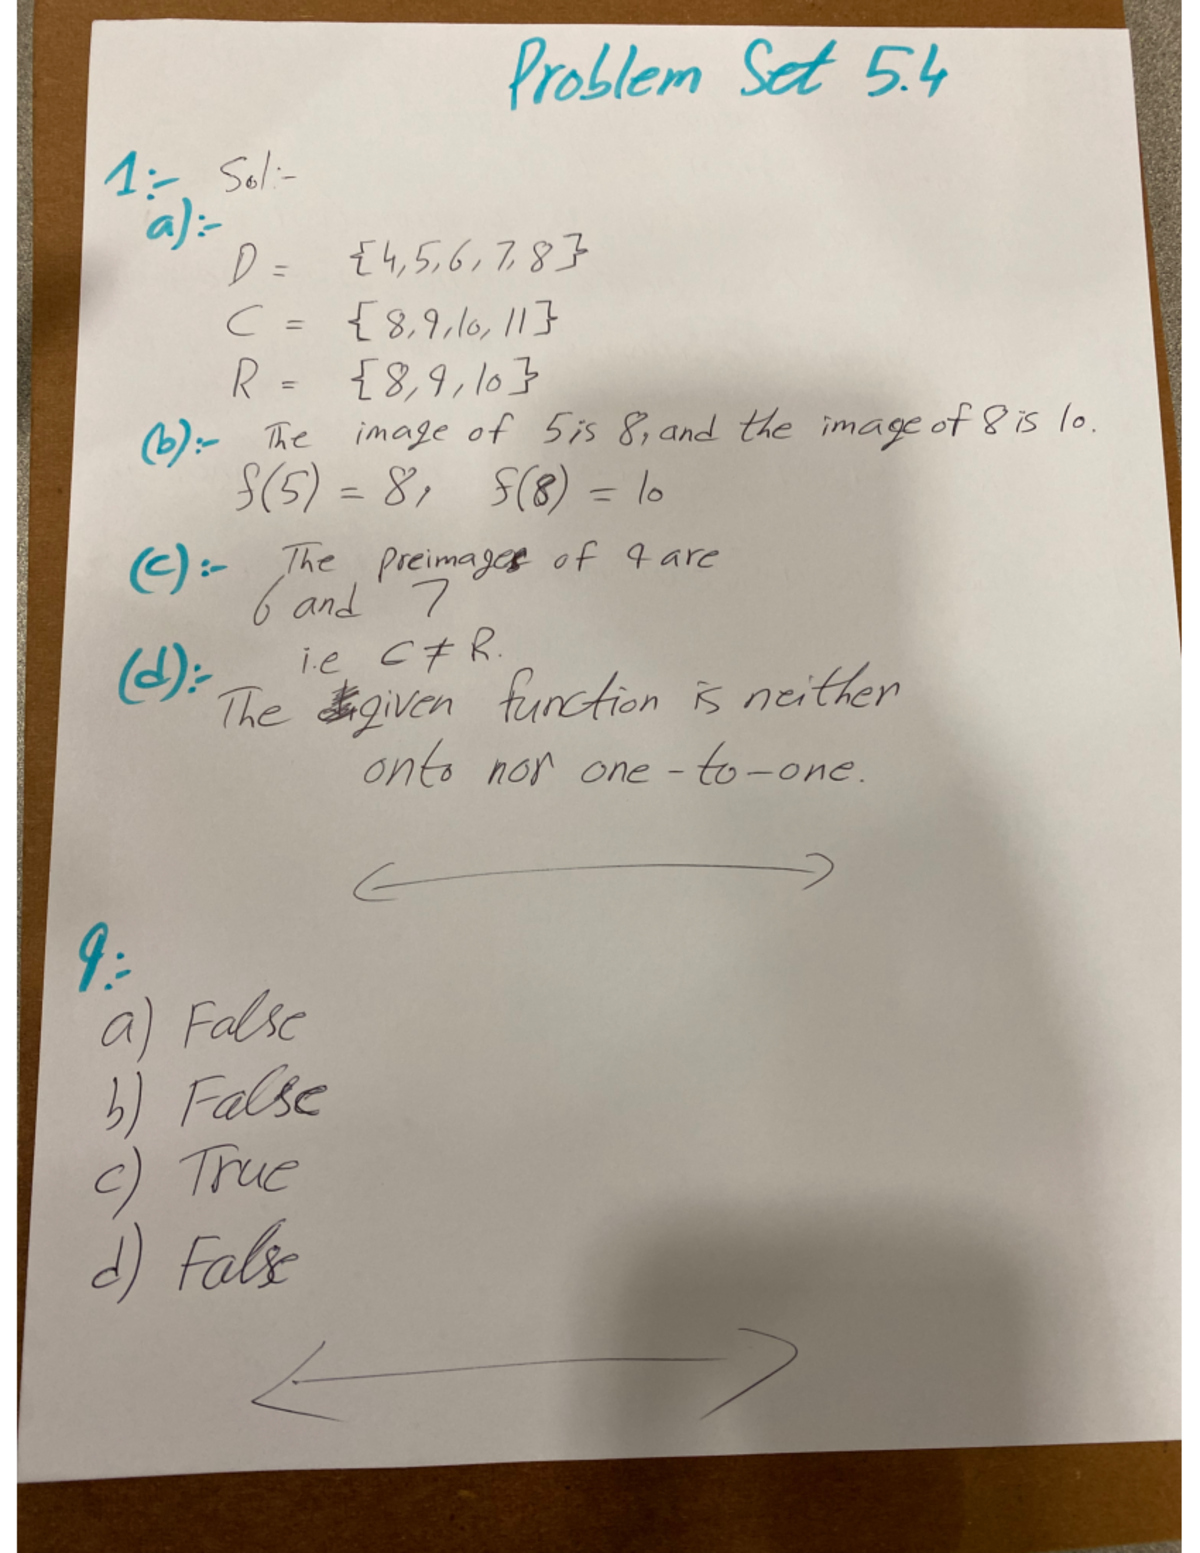 Problem Set 5.4
1:- Sol:-
a):-
D = {4,5,6,7,8}
C = {8,9,10,11}
R = {8,9,10}
(b):- The image of 5 is 8, and the image of 8 is 10.
f(5) = 8, f(8) = 10
(c):- The preimages of 9 are
6 and 7
(d):- i.e C ≠ R.
The given function is neither
onto nor one-to-one.
9:-
a) False
b) False
c) True
d) False